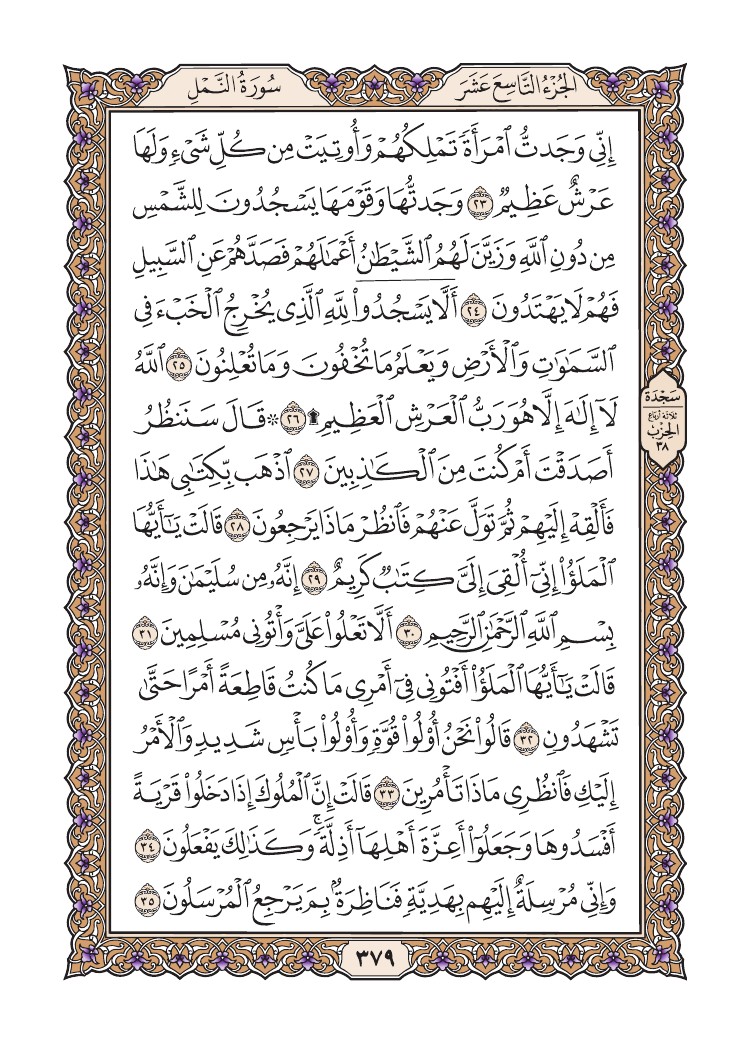 الجُزْءُ التَّاسِعَ عَشَرَ
سُورَةُ النَّمْلِ
إِنِّي وَجَدتُّ ٱمْرَأَةً تَمْلِكُهُمْ وَأُوتِيَتْ مِن كُلِّ شَىْءٍ وَلَهَا
عَرْشٌ عَظِيمٌ ٢٣ وَجَدتُّهَا وَقَوْمَهَا يَسْجُدُونَ لِلشَّمْسِ
مِن دُونِ ٱللَّهِ وَزَيَّنَ لَهُمُ ٱلشَّيْطَٰنُ أَعْمَٰلَهُمْ فَصَدَّهُمْ عَنِ ٱلسَّبِيلِ
فَهُمْ لَا يَهْتَدُونَ ٢٤ أَلَّا يَسْجُدُوا۟ لِلَّهِ ٱلَّذِى يُخْرِجُ ٱلْخَبْءَ فِى
ٱلسَّمَٰوَٰتِ وَٱلْأَرْضِ وَيَعْلَمُ مَا تُخْفُونَ وَمَا تُعْلِنُونَ ٢٥ ٱللَّهُ
لَآ إِلَٰهَ إِلَّا هُوَ رَبُّ ٱلْعَرْشِ ٱلْعَظِيمِ ۩ ٢٦ ۞ قَالَ سَنَنظُرُ
أَصَدَقْتَ أَمْ كُنتَ مِنَ ٱلْكَٰذِبِينَ ٢٧ ٱذْهَب بِّكِتَٰبِى هَٰذَا
فَأَلْقِهْ إِلَيْهِمْ ثُمَّ تَوَلَّ عَنْهُمْ فَٱنظُرْ مَاذَا يَرْجِعُونَ ٢٨ قَالَتْ يَٰٓأَيُّهَا
ٱلْمَلَؤُا۟ إِنِّىٓ أُلْقِىَ إِلَىَّ كِتَٰبٌ كَرِيمٌ ٢٩ إِنَّهُۥ مِن سُلَيْمَٰنَ وَإِنَّهُۥ
بِسْمِ ٱللَّهِ ٱلرَّحْمَٰنِ ٱلرَّحِيمِ ٣٠ أَلَّا تَعْلُوا۟ عَلَىَّ وَأْتُونِى مُسْلِمِينَ ٣١
قَالَتْ يَٰٓأَيُّهَا ٱلْمَلَؤُا۟ أَفْتُونِى فِىٓ أَمْرِى مَا كُنتُ قَاطِعَةً أَمْرًا حَتَّىٰ
تَشْهَدُونِ ٣٢ قَالُوا۟ نَحْنُ أُو۟لُوا۟ قُوَّةٍ وَأُو۟لُوا۟ بَأْسٍ شَدِيدٍ وَٱلْأَمْرُ
إِلَيْكِ فَٱنظُرِى مَاذَا تَأْمُرِينَ ٣٣ قَالَتْ إِنَّ ٱلْمُلُوكَ إِذَا دَخَلُوا۟ قَرْيَةً
أَفْسَدُوهَا وَجَعَلُوٓا۟ أَعِزَّةَ أَهْلِهَآ أَذِلَّةً ۖ وَكَذَٰلِكَ يَفْعَلُونَ ٣٤
وَإِنِّى مُرْسِلَةٌ إِلَيْهِم بِهَدِيَّةٍ فَنَاظِرَةٌۢ بِمَ يَرْجِعُ ٱلْمُرْسَلُونَ ٣٥
سَجْدَة
ثلاثة أرباع
الحِزْب
٣٨
٣٧٩